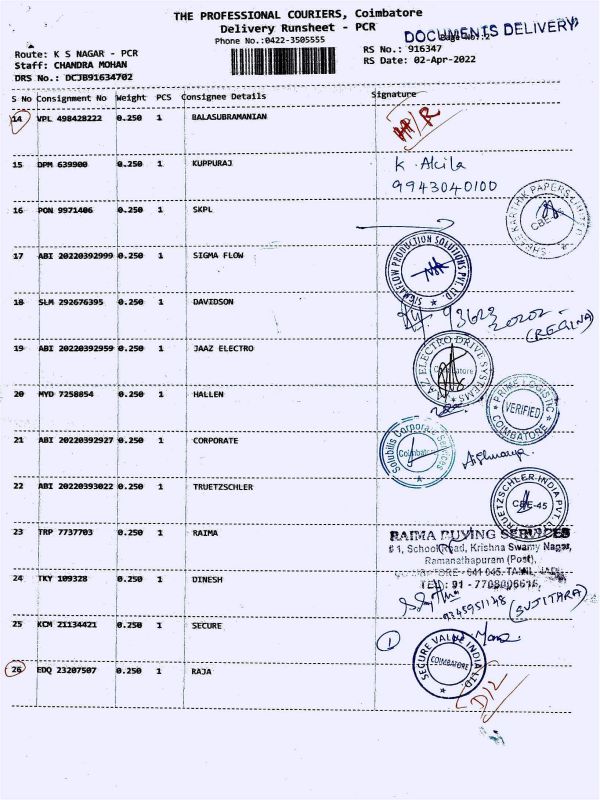 THE PROFESSIONAL COURIERS, Coimbatore
Delivery Runsheet - PCR
DOCUMENTS DELIVERY
Phone No.:0422-3505555
Route: K S NAGAR - PCR
RS No.: 916347
Staff: CHANDRA MOHAN
RS Date: 02-Apr-2022
DRS No.: DCJB91634702
S No Consignment No Weight PCS Consignee Details Signature
14 VPL 498428222 0.250 1 BALASUBRAMANIAN
15 DPM 639900 0.250 1 KUPPURAJ K. Akila
9943040100
16 PON 9971406 0.250 1 SKPL
SHREE KARTHIK PAPERS LIMITED
17 ABI 20220392999 0.250 1 SIGMA FLOW
SIGMAFLOW PRODUCTION SOLUTIONS PVT. LTD.
18 SLM 292676395 0.250 1 DAVIDSON
93629
20202
(REGINA)
19 ABI 20220392959 0.250 1 JAAZ ELECTRO
JAAZ ELECTRO DRIVE SYSTEMS
20 MYD 7258854 0.250 1 HALLEN
PRIME LOGISTIC
VERIFIED
COIMBATORE
21 ABI 20220392927 0.250 1 CORPORATE
Solubilis Corporate Services
Coimbatore
Aishwarya
22 ABI 20220393022 0.250 1 TRUETZSCHLER
TRUETZSCHLER INDIA PVT. LTD.
CBE-45
23 TRP 7737703 0.250 1 RAIMA
RAIMA BUYING SERVICES
# 1, School Road, Krishna Swamy Nagar,
Ramanathapuram (Post),
COIMBATORE - 641 045. TAMIL NADU
TEL: 91 - 7708006616,
24 TKY 109328 0.250 1 DINESH
9345951148 (SUJITARA)
25 KCM 21134421 0.250 1 SECURE
1
SECURE VALUE INDIA LTD.
COIMBATORE
26 EDQ 23207507 0.250 1 RAJA
D/L